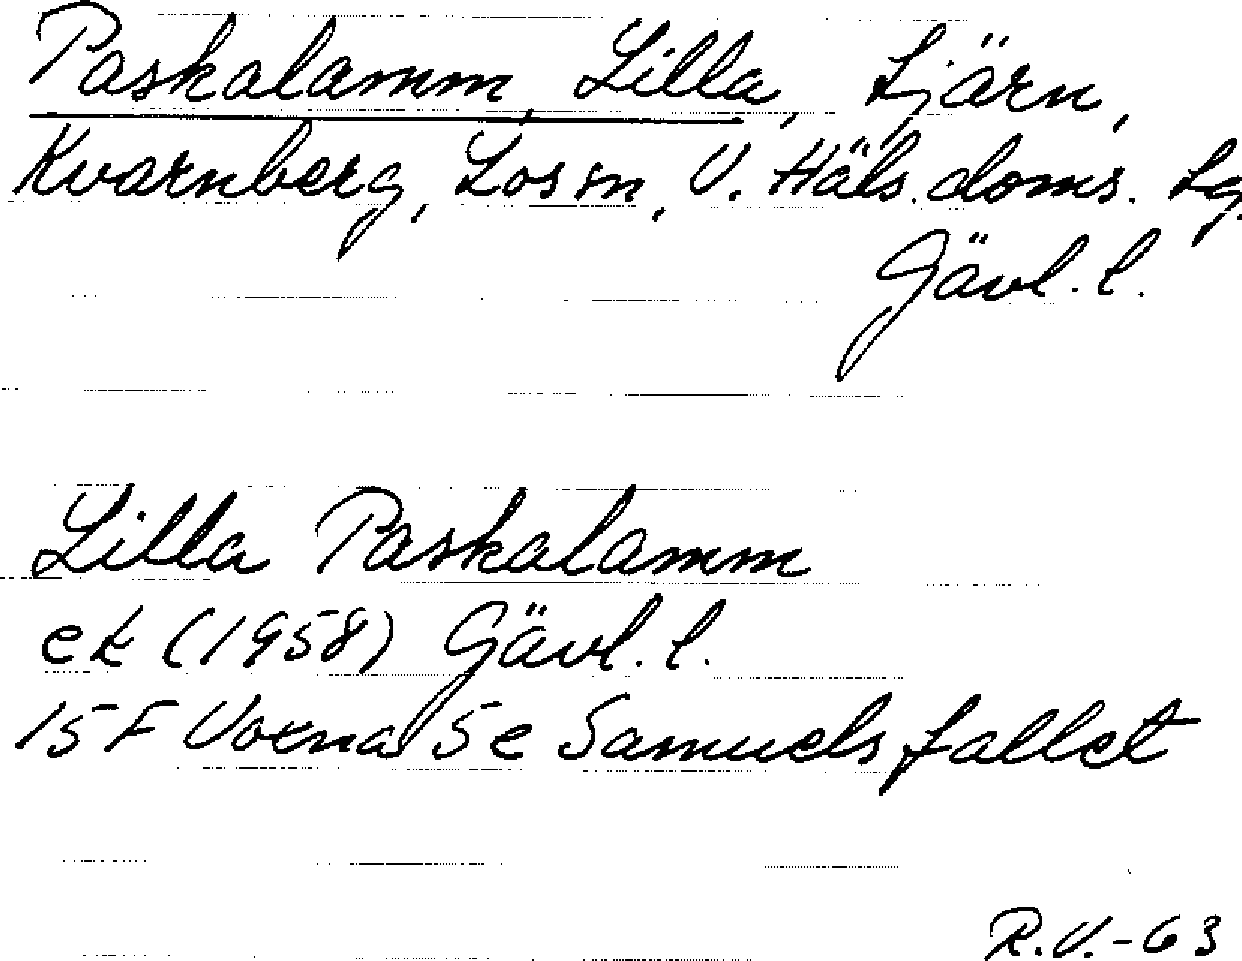 Paskalamm, Lilla, tjärn,
Kvarnberg, Los sn, V. Häls. doms. tg.
Gävl. l.
Lilla Paskalamm
ek (1958) Gävl. l.
15 F Voxna 5 e Samuelsfallet
R.V.-63